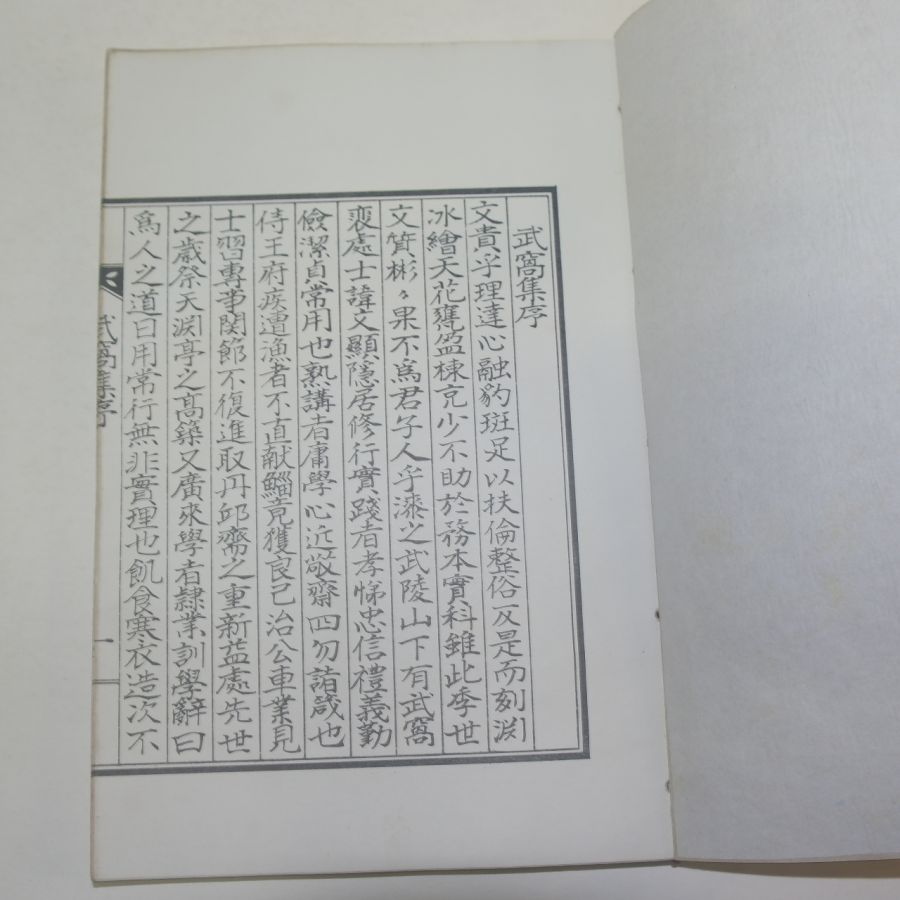 武窩集序
文貴乎理達心融豹斑足以扶倫整俗反是而刻渊
冰繪天花甕盈棟充少不助於務本實科雖此季世
文質彬〻果不爲君子人乎漆之武陵山下有武窩
裵處士諱文顯隱居修行實踐者孝悌忠信禮義勤
儉潔貞常用也熟講者庸學心近敬齋四勿諸箴也
侍王府疾遭漁者不直献鯔竟獲良己治公車業見
士習專事関節不復進取丹邱齋之重新益處先世
之歲祭天淵亭之高築又廣來學者隷業訓學辭曰
爲人之道日用常行無非實理也飢食寒衣造次不
武窩集序
一